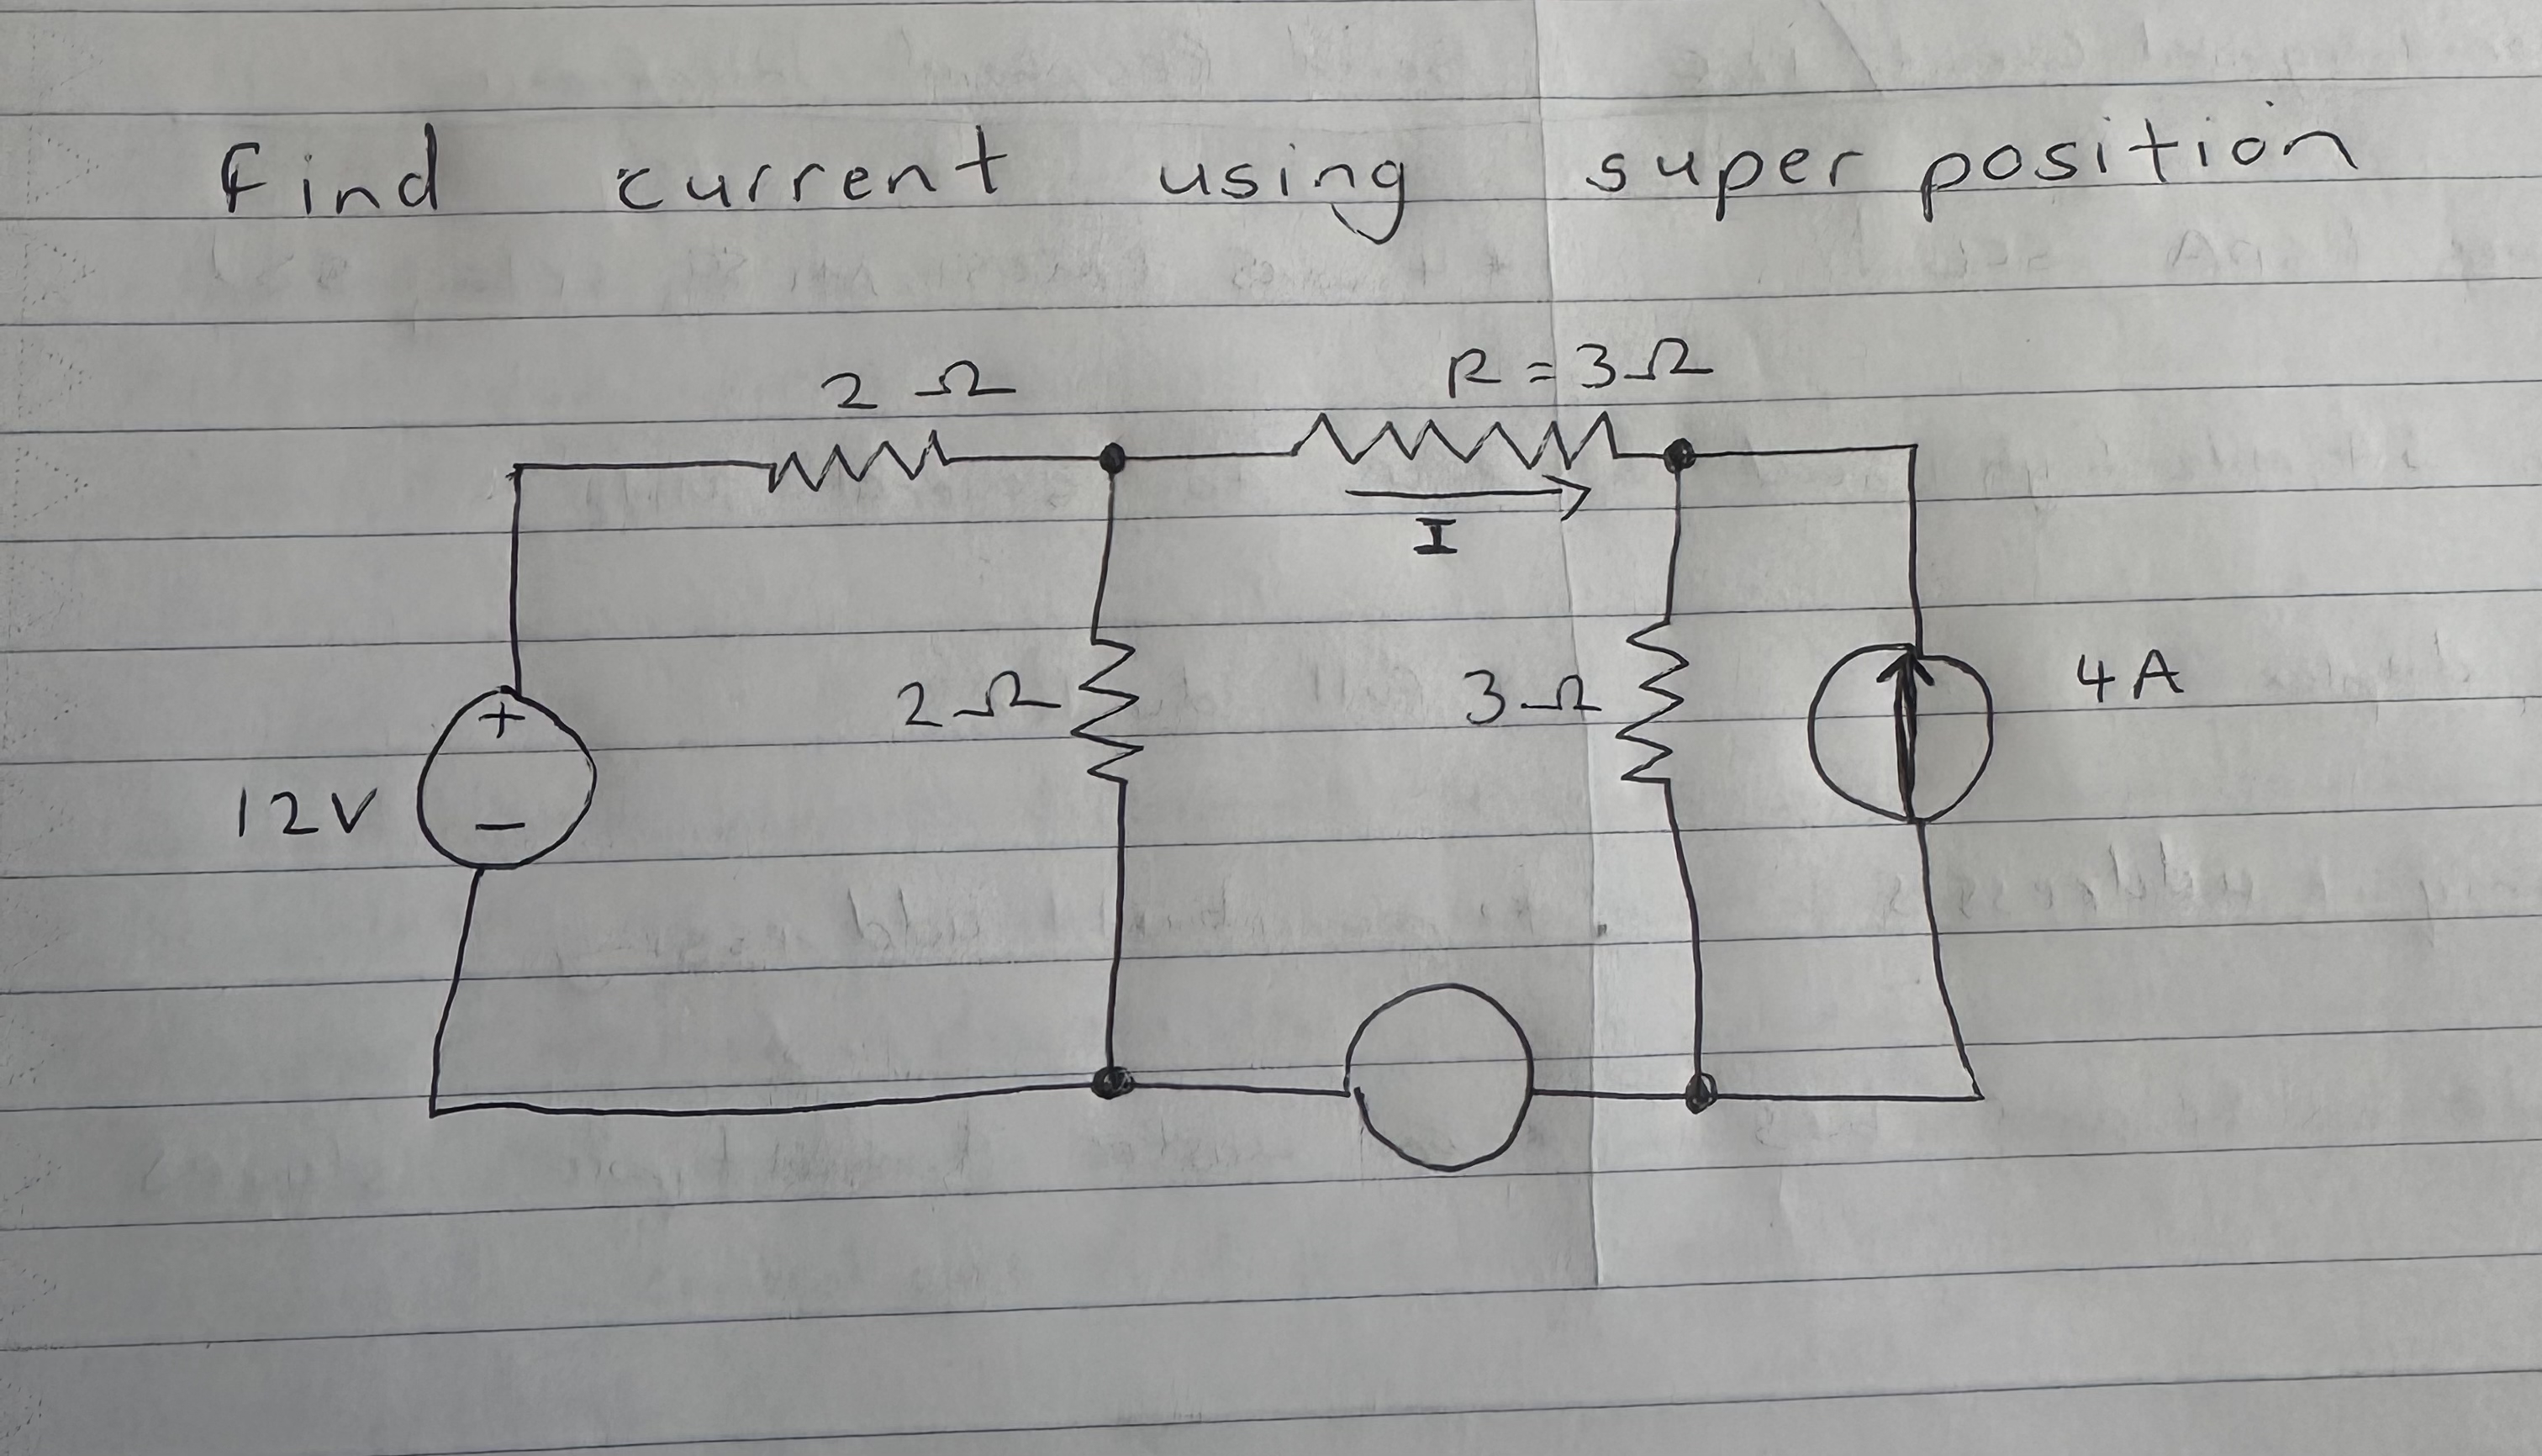 Find current using super position
2 Ω
R = 3Ω
I
2Ω
3Ω
4A
+
12V
−